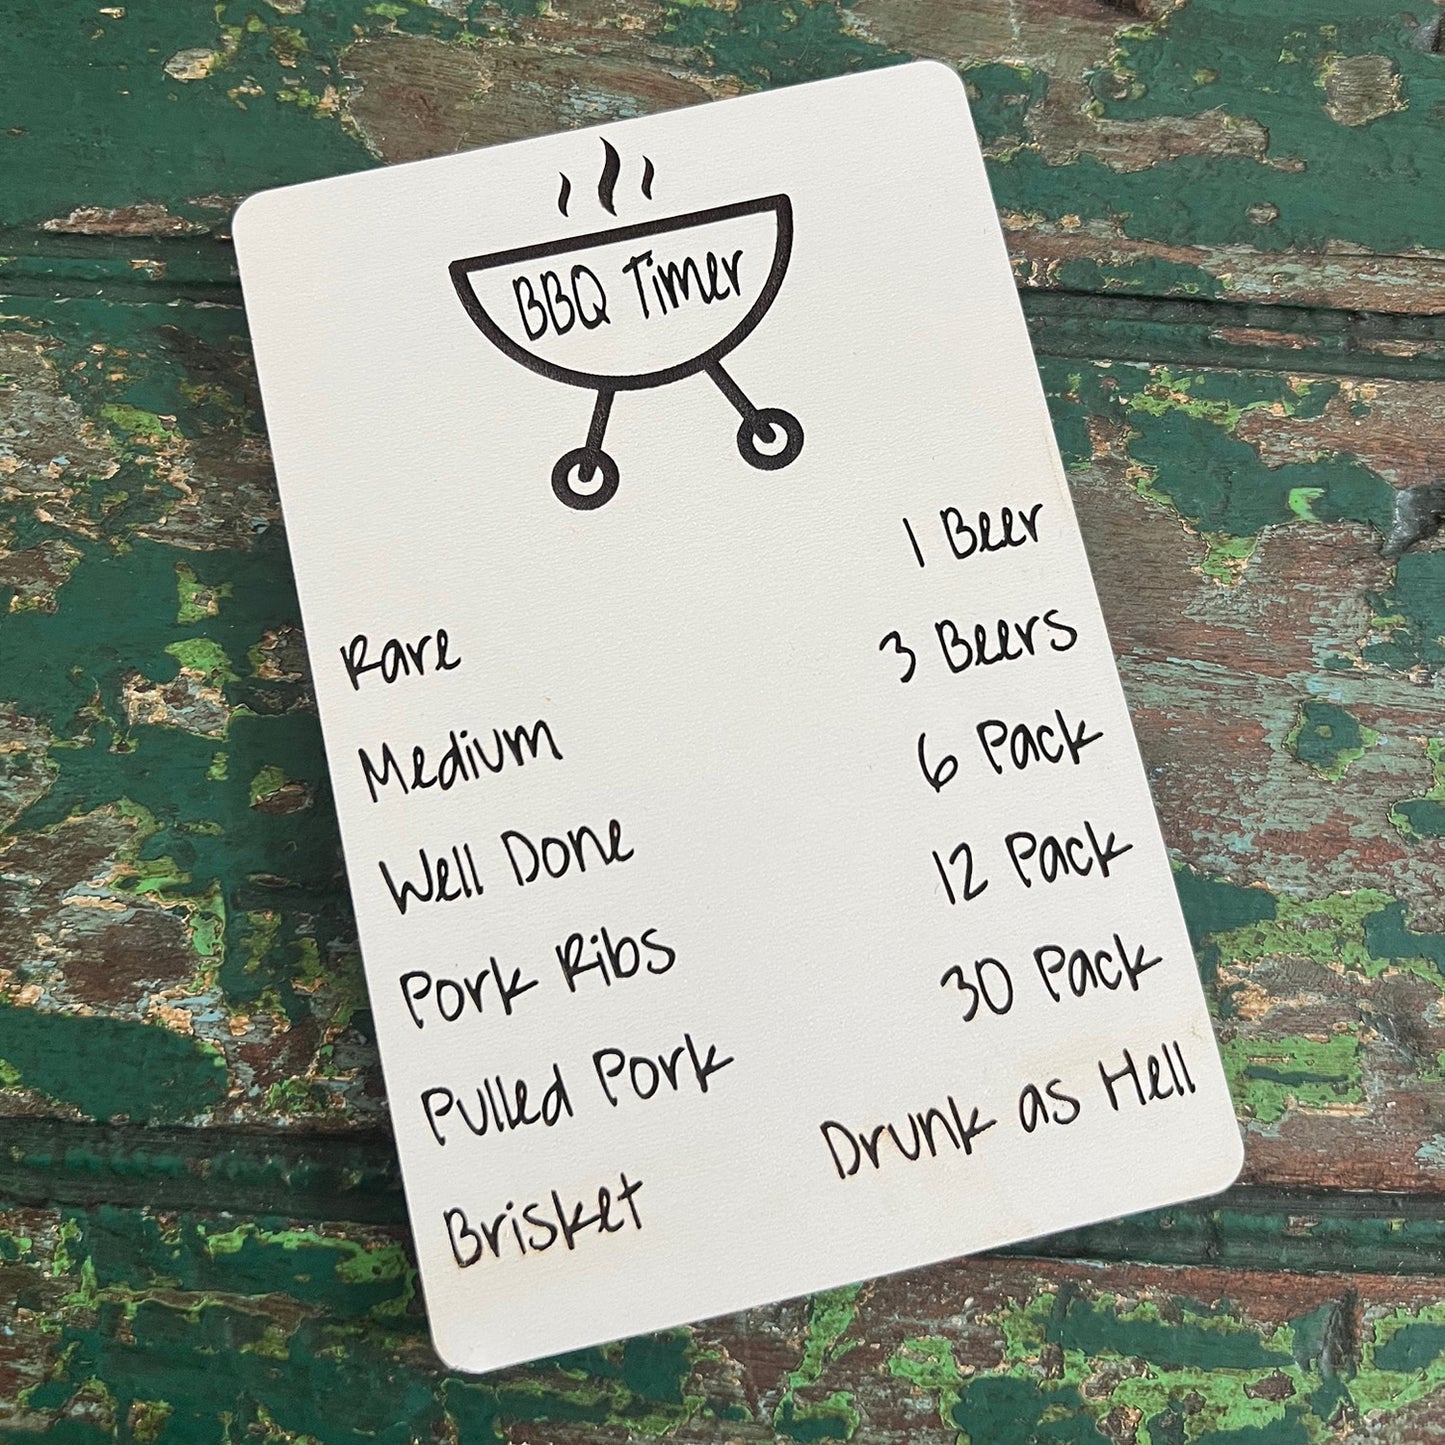 BBQ Timer
Rare 1 Beer
Medium 3 Beers
Well Done 6 Pack
Pork Ribs 12 Pack
Pulled Pork 30 Pack
Brisket Drunk as Hell